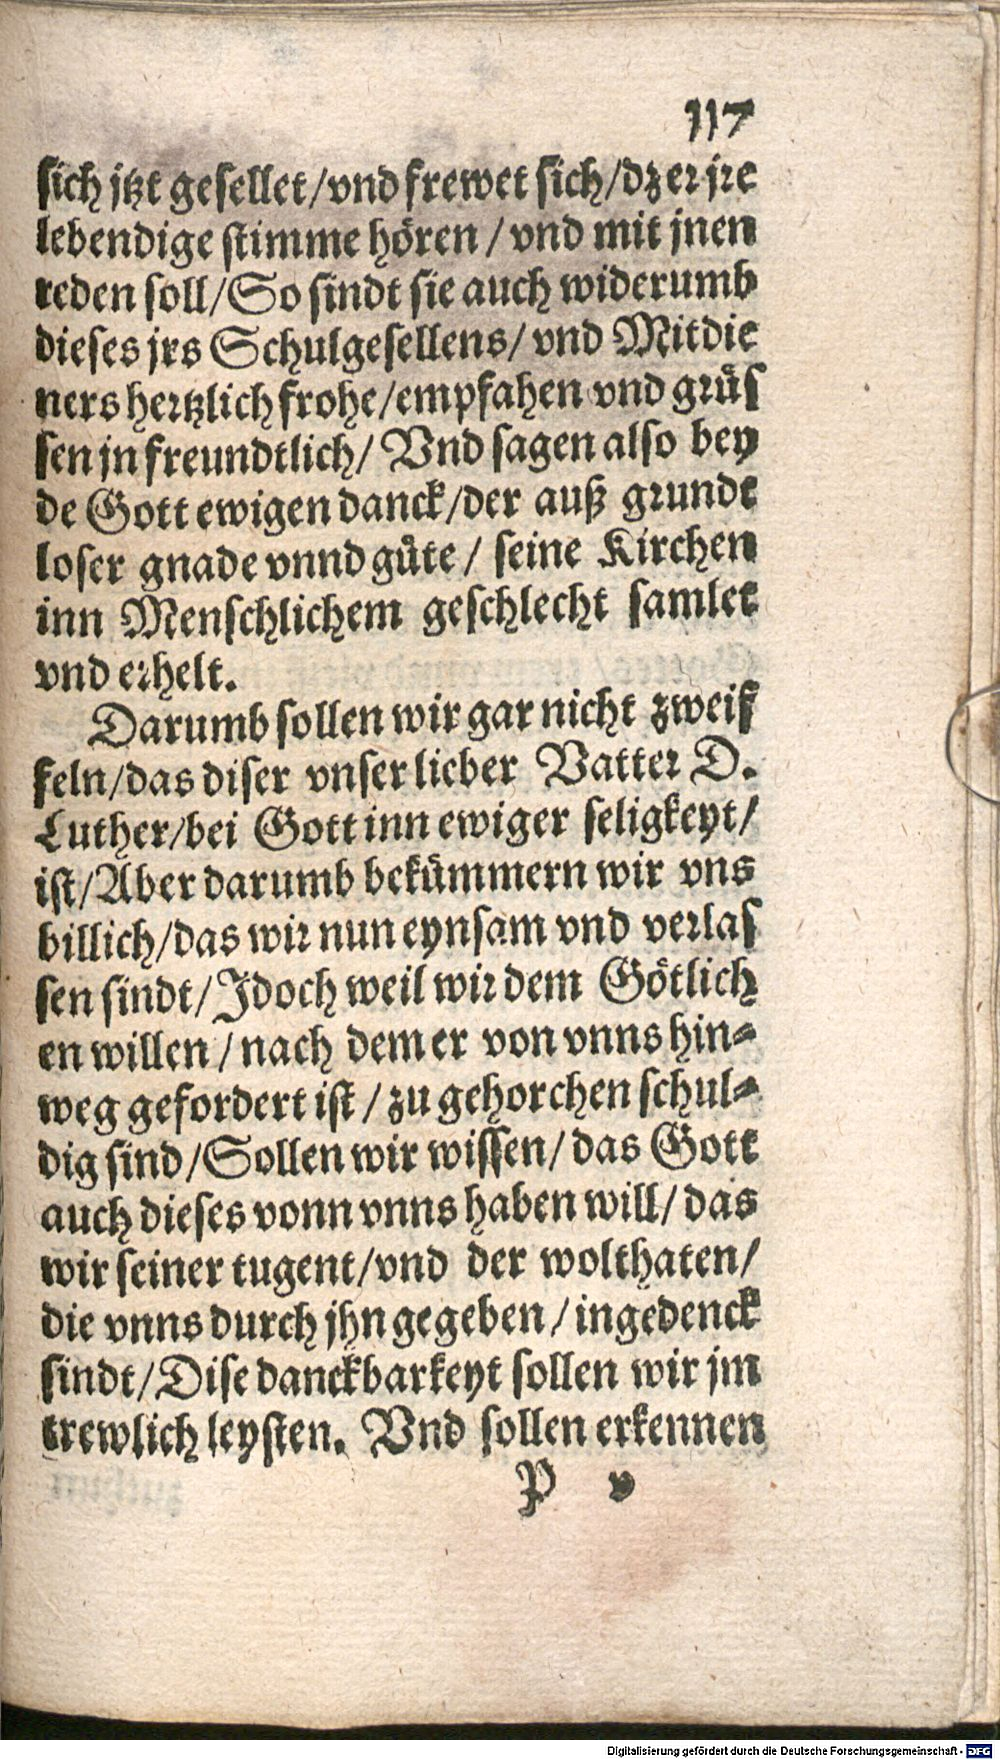 117
sich jtzt gesellet/vnd frewet sich/dz er jre
lebendige stimme hören / vnd mit jnen
reden soll/So sindt sie auch widerumb
dieses jrs Schulgesellens/ vnd Mitdie
ners hertzlich frohe/empfahen vnd grüs
sen jn freundtlich/ Vnd sagen also bey
de Gott ewigen danck/der auß grundt
loser gnade vnnd güte / seine Kirchen
inn Menschlichem geschlecht samlet
vnd erhelt.
Darumb sollen wir gar nicht zweif
feln/das diser vnser lieber Vatter D.
Luther/bei Gott inn ewiger seligkeyt/
ist/Aber darumb bekümmern wir vns
billich/das wir nun eynsam vnd verlas
sen sindt/Jdoch weil wir dem Götlich
en willen / nach dem er von vnns hin-
weg gefordert ist / zu gehorchen schul-
dig sind/Sollen wir wissen/ das Gott
auch dieses vonn vnns haben will/ das
wir seiner tugent/vnd der wolthaten/
die vnns durch jhn gegeben / ingedenck
sindt/Dise danckbarkeyt sollen wir jm
trewlich leysten. Vnd sollen erkennen
P v
Digitalisierung gefördert durch die Deutsche Forschungsgemeinschaft - DFG